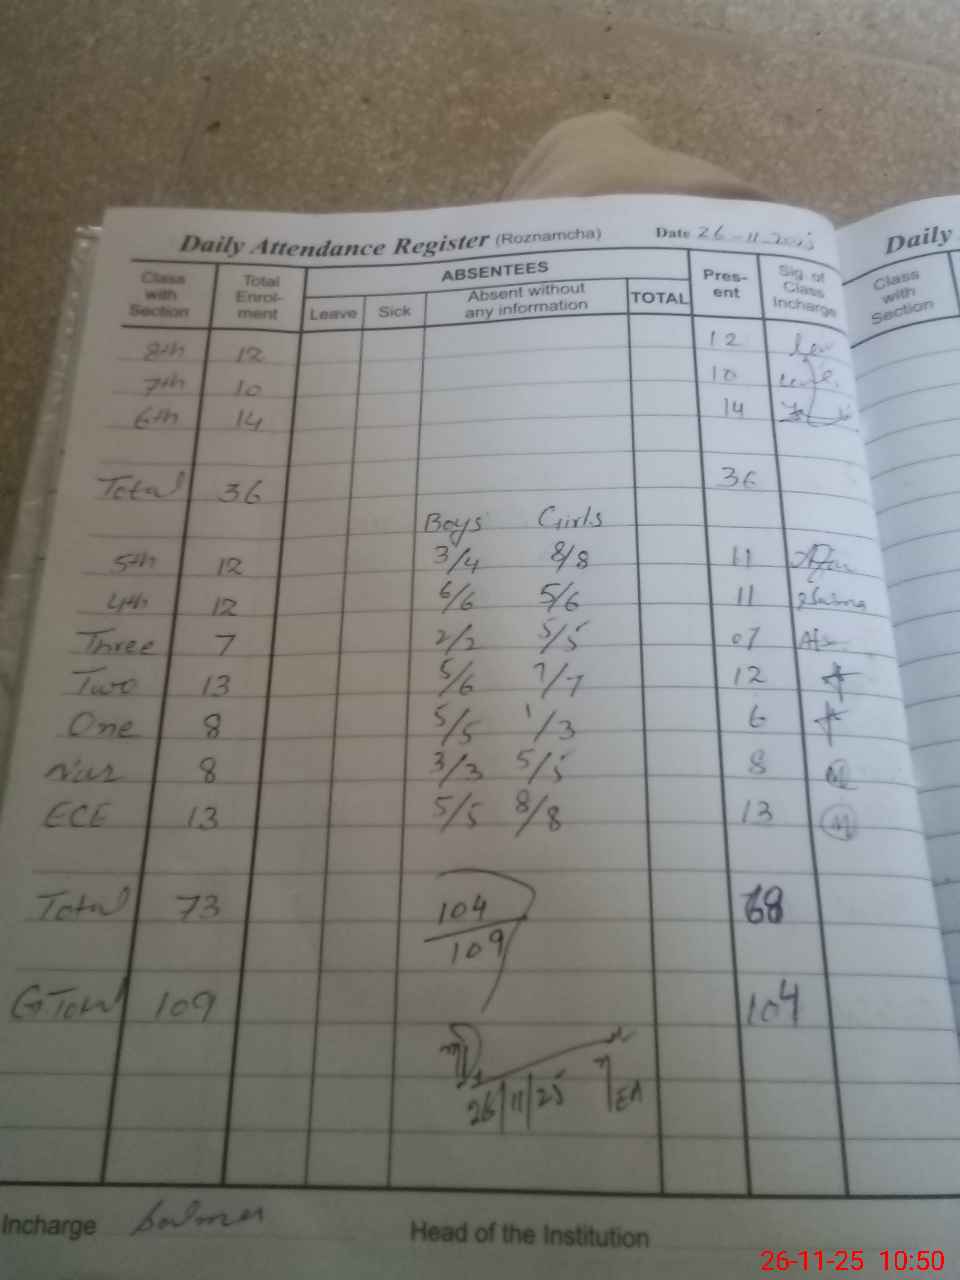 Daily Attendance Register (Roznamcha) Date 26-11-2025
Daily
Class with Section Total Enrol-ment ABSENTEES Pres-ent Sig. of Class Incharge
Leave Sick Absent without any information TOTAL
Class with Section
8th 12 12
7th 10 10
6th 14 14
Total 36 36
Boys Girls
5th 12 3/4 8/8 11
4th 12 6/6 5/6 11
Three 7 2/2 5/5 07
Two 13 5/6 7/7 12
One 8 5/5 1/3 6
Nur 8 3/3 5/5 8 M
ECE 13 5/5 8/8 13 M
Total 73 104/109 68
G Total 109 104
26/11/25
Incharge Head of the Institution
26-11-25 10:50